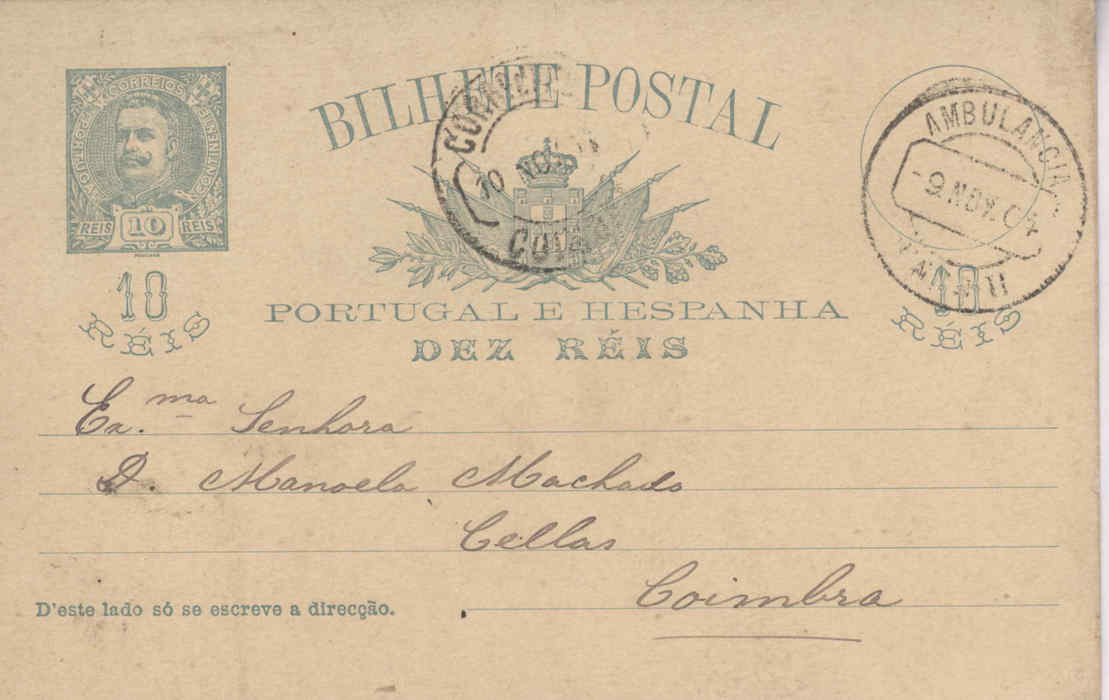 PORTUGAL CORREIOS CONTINENTE
REIS 10 REIS
10
RÉIS
BILHETE POSTAL
10 NOV
PORTUGAL E HESPANHA
DEZ RÉIS
AMBULANCIA
- 9. NOV. 04
II
10
RÉIS
Ex.ma Senhora
D. Manoela Machado
Cellas
Coimbra
D'este lado só se escreve a direcção.